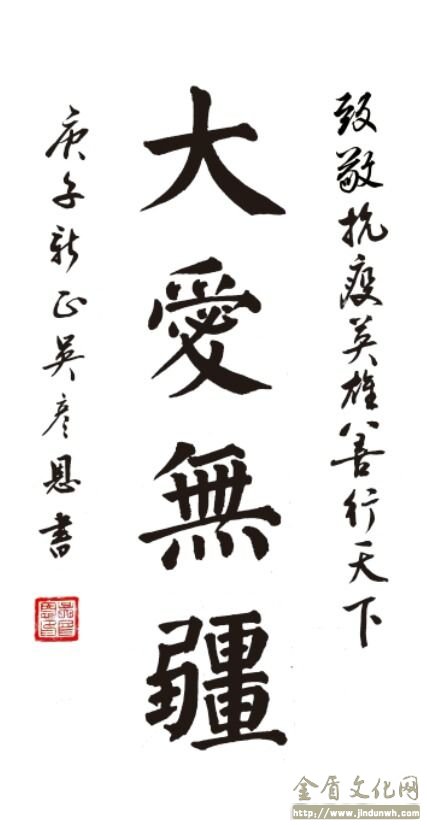 致敬抗疫英雄善行天下
大愛無疆
庚子新正吴彦恩書
金盾文化网
http://www.jindunwh.com